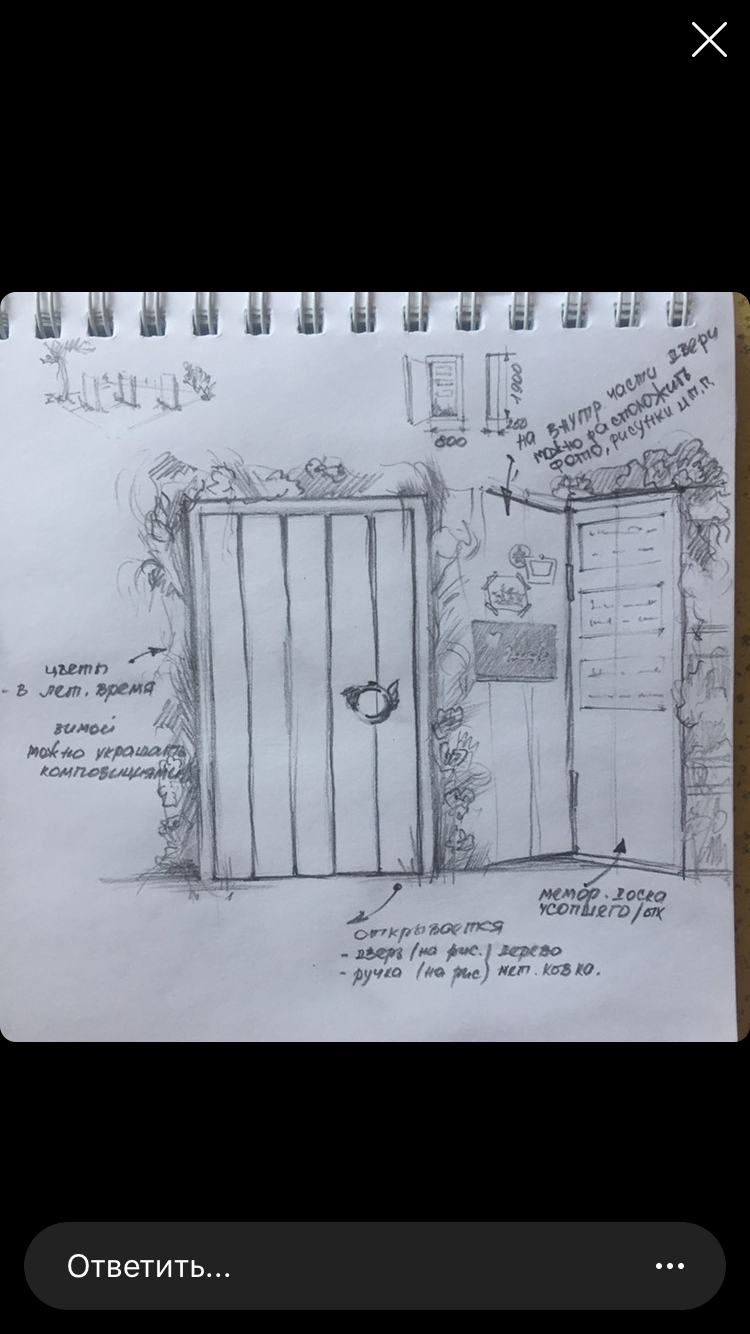 1900
200
800
на внутр. части двери
можно расположить
фото, рисунки и т.п.
цветы
- в лет. время
зимой
можно украшать
композициями
мемор. доска
усопшего/
открывается
- дверь (на рис.) дерево
- ручка (на рис) мет. ковка.
Ответить...